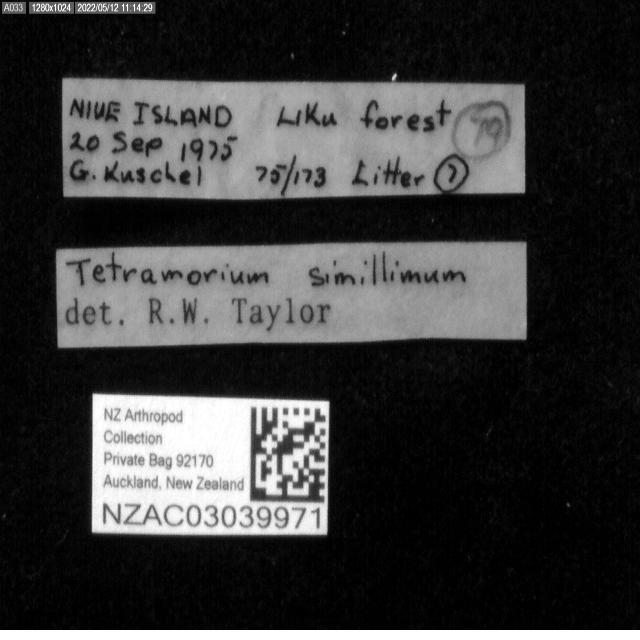 A033 1280x1024 2022/05/12 11:14:29
NIUE ISLAND Liku forest 79
20 Sep 1975
G. Kuschel 75/173 Litter 7
Tetramorium simillimum
det. R.W. Taylor
NZ Arthropod
Collection
Private Bag 92170
Auckland, New Zealand
NZAC03039971